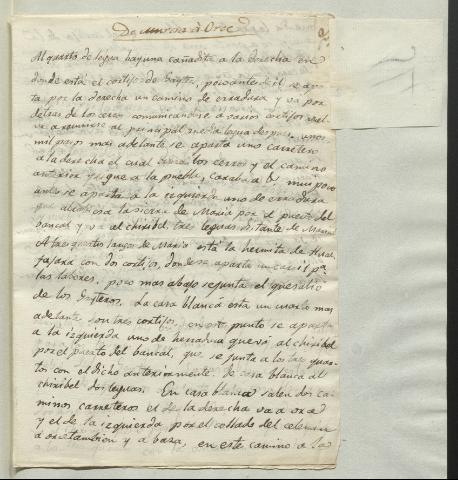 De a Orce
Al quarto de legua hay una cañadita a la derecha en
donde está el cortijo de poco antes de el se apar
ta por la derecha un camino de erradura y va por
detras de los cerros comunicandose a varios cortijos
a reunirse al principal media legua despues. unos
mil pasos mas adelante se aparta uno carretero
a la derecha el cual los cerros y el camino
anterior y sigue a la puebla, muy poco
antes se aparta a la izquierda uno de erradura
que atraviesa la sierra de Maria por el puerto del
bancal y va al chiribel, tres leguas distante de Maria
A tres quartos largos de Maria está la hermita de
fajara con dos cortijos, donde se aparta un carril pª
las labores, poco mas abajo se junta el que salio
de los La casa blanca está un quarto mas
adelante son tres cortijos, en este punto se aparta
a la izquierda uno de herradura que va al chiribel
por el puerto del bancal, que se junta a los tres quar
tos con el dicho anteriormente. de casa blanca al
chiribel dos leguas. En casa blanca salen dos ca
minos carreteros el de la derecha va a
y el de la izquierda por el collado del
a orce tambien y a baza, en este camino a la